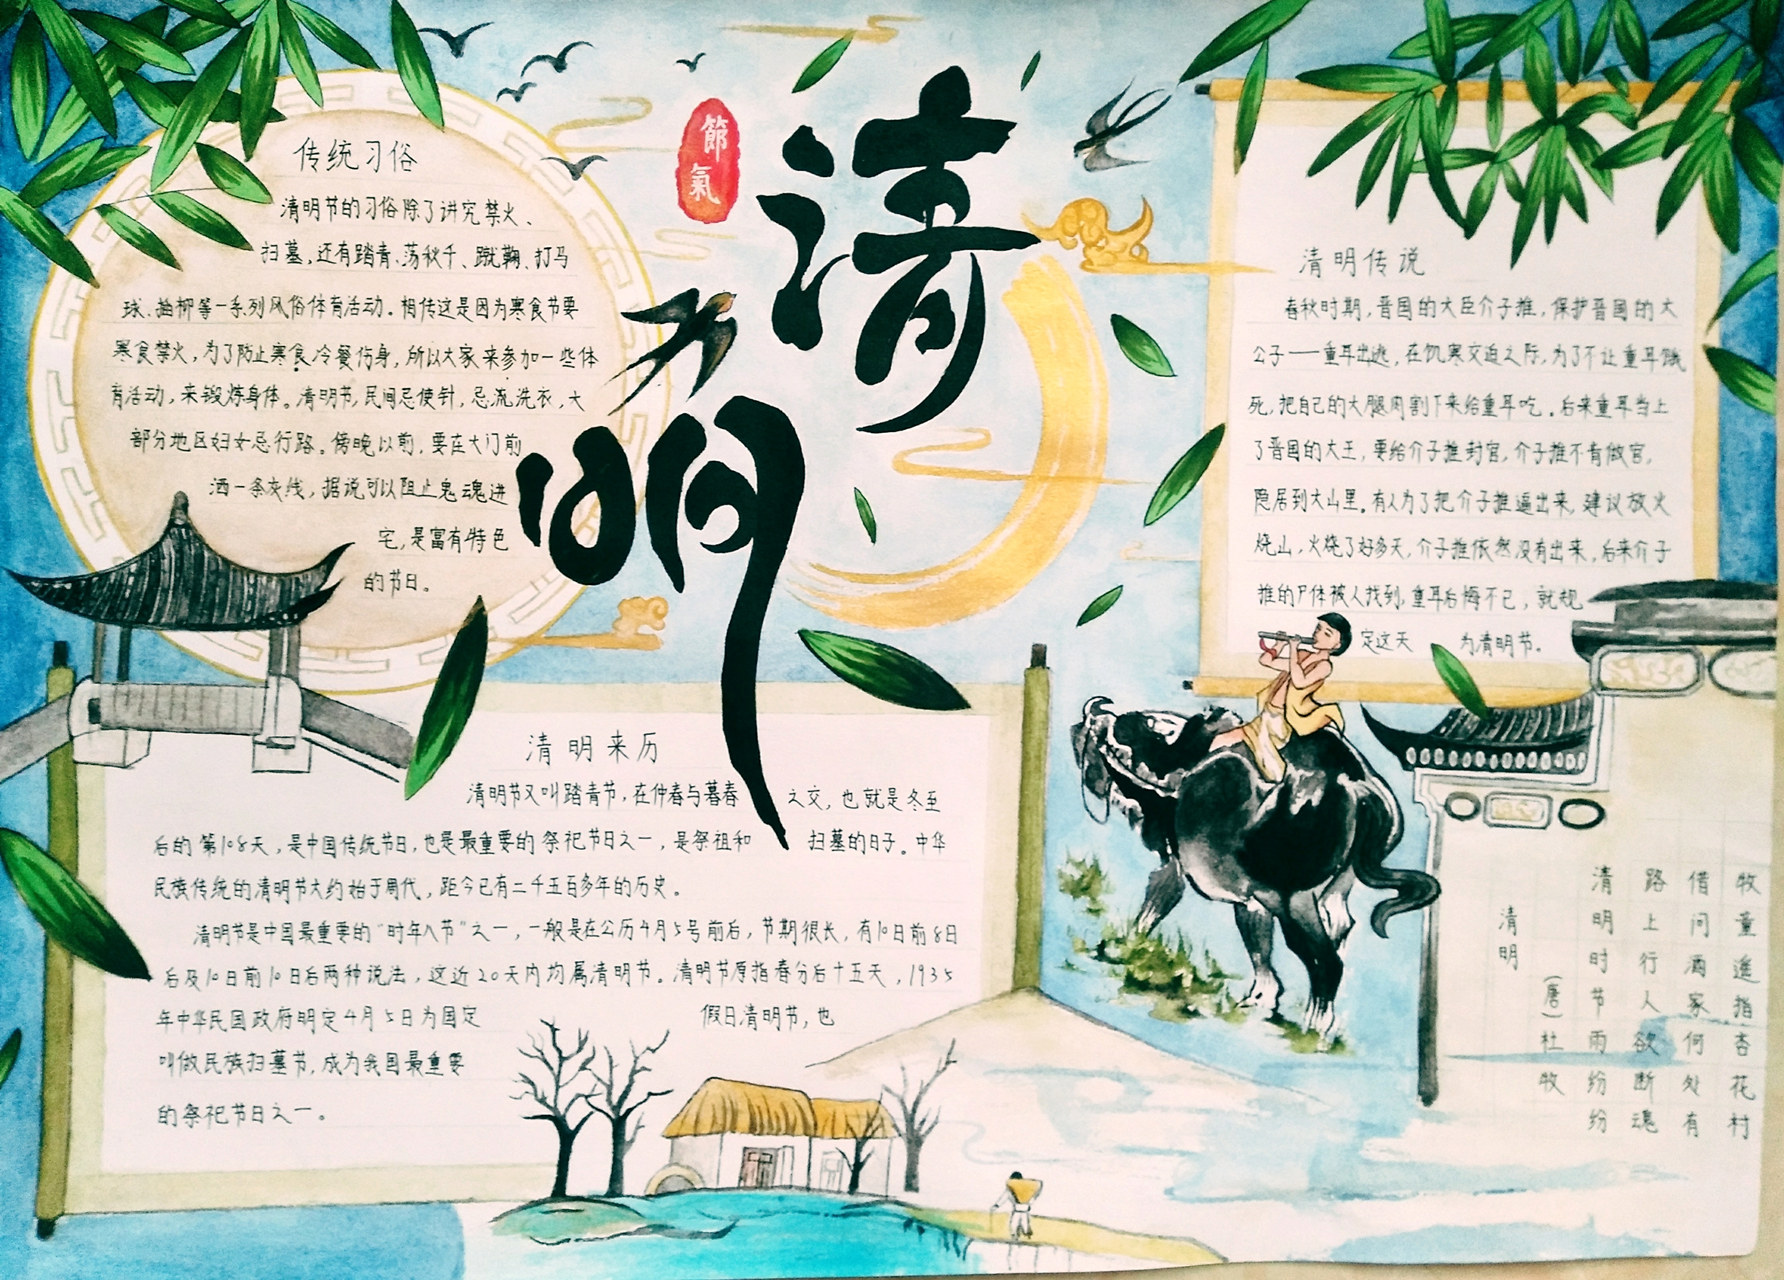 節氣
清明
传统习俗
清明节的习俗除了讲究禁火、
扫墓,还有踏青、荡秋千、蹴鞠、打马
球、插柳等一系列风俗体育活动。相传这是因为寒食节要
寒食禁火,为了防止寒食冷餐伤身,所以大家来参加一些体
育活动,来锻炼身体。清明节,民间忌使针,忌洗衣,大
部分地区妇女忌行路。傍晚以前,要在大门前
洒一条灰线,据说可以阻止鬼魂进
宅,是富有特色
的节日。
清明传说
春秋时期,晋国的大臣介子推,保护晋国的大
公子——重耳出逃,在饥寒交迫之际,为了不让重耳饿
死,把自己的大腿肉割下来给重耳吃。后来重耳当上
了晋国的大王,要给介子推封官,介子推不肯做官,
隐居到大山里。有人为了把介子推逼出来,建议放火
烧山,火烧了好多天,介子推依然没有出来,后来介子
推的尸体被人找到,重耳后悔不已,就规
定这天 为清明节。
清明来历
清明节又叫踏青节,在仲春与暮春 之交,也就是冬至
后的第108天,是中国传统节日,也是最重要的祭祀节日之一,是祭祖和 扫墓的日子。中华
民族传统的清明节大约始于周代,距今已有二千五百多年的历史。
清明节是中国最重要的“时年八节”之一,一般是在公历4月5号前后,节期很长,有10日前8日
后及10日前10日后两种说法,这近20天内均属清明节。清明节原指春分后十五天,1935
年中华民国政府明定4月5日为国定 假日清明节,也
叫做民族扫墓节,成为我国最重要
的祭祀节日之一。
清明
(唐)杜牧
清明时节雨纷纷
路上行人欲断魂
借问酒家何处有
牧童遥指杏花村